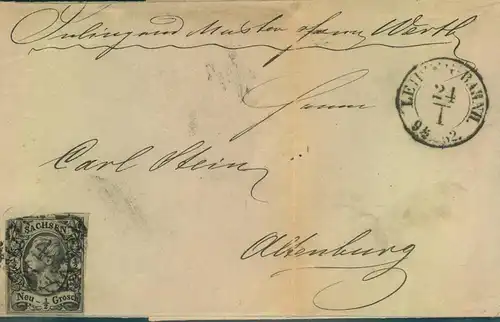 Inliegend Muster ohne Werth
LEIPZIG BAHNH.
24
I
9½ 52.
Herrn
Carl Stein
Altenburg
SACHSEN
Neu - ½ - Grosch